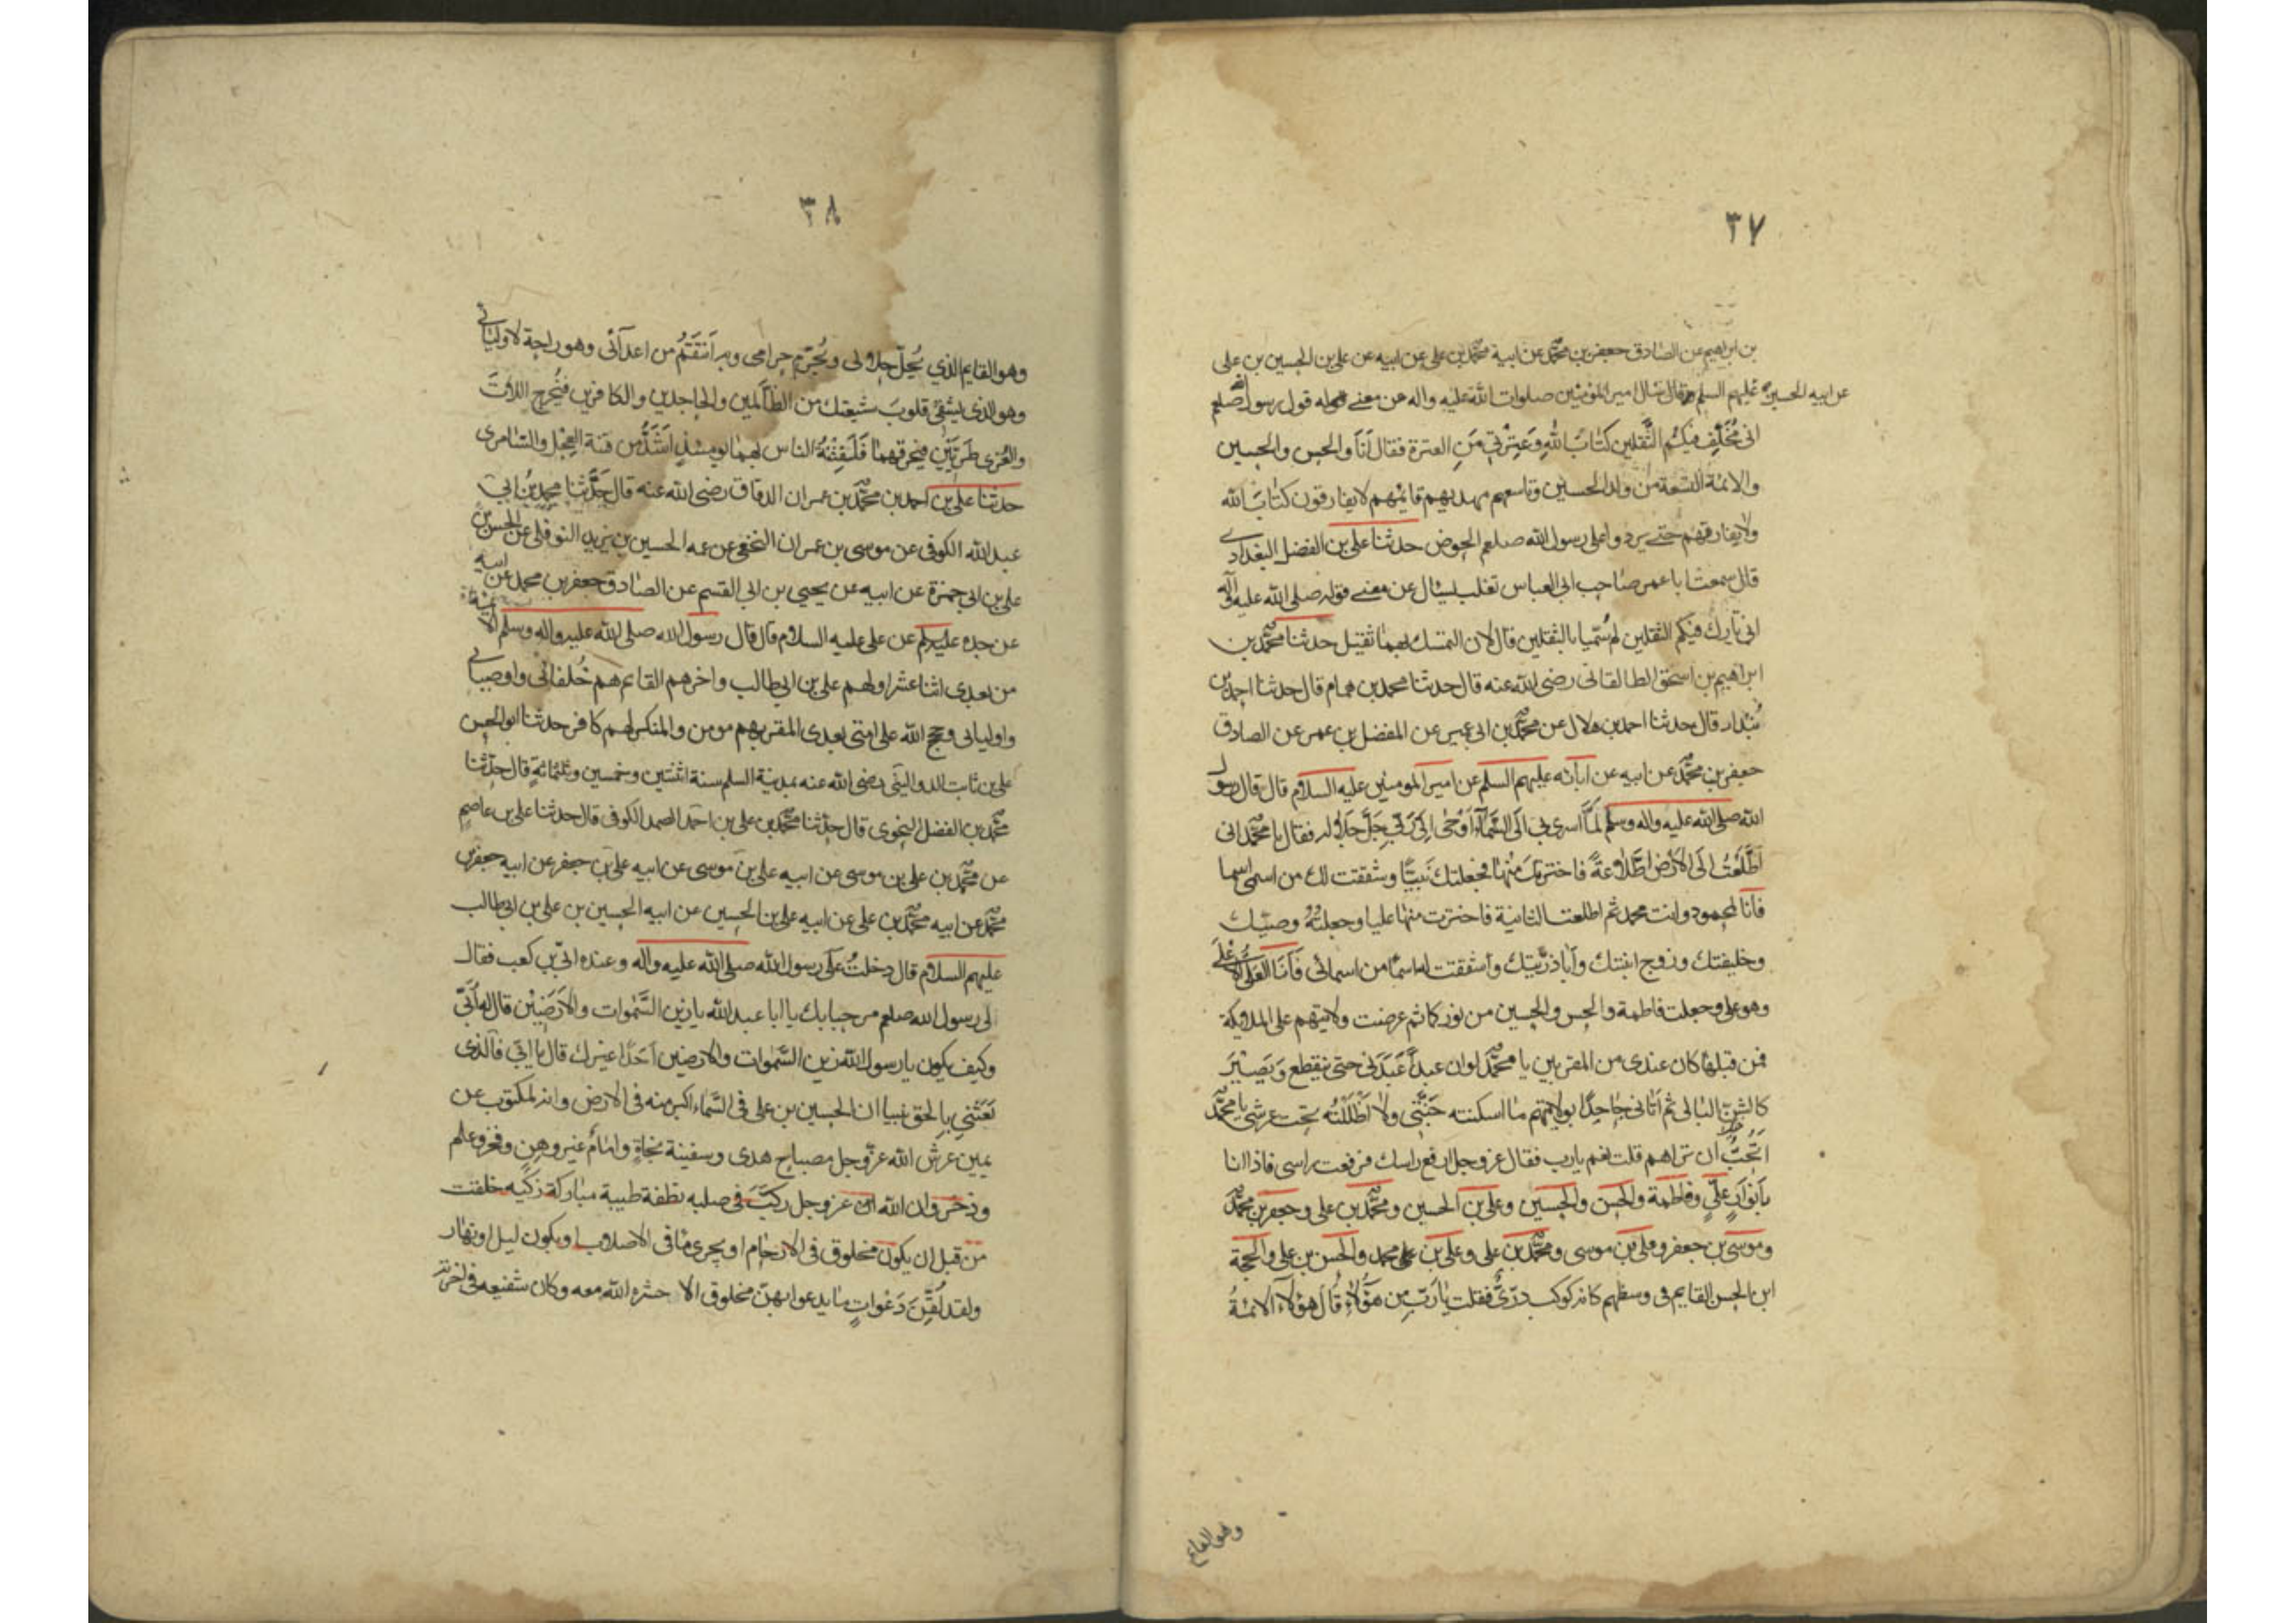 ٣٧
بن ابراهيم عن الصادق جعفر بن محمد عن ابيه محمد بن علي عن ابيه عن علي بن الحسين بن علي
عن ابيه الحسين عليهم السلم قال سال امير المؤمنين صلوات الله عليه واله عن معنى قول رسول الله صلعم
اني مُخَلِّف فيكم الثَّقلين كتابَ اللهِ وَعِترتي مَنِ العترة فقال أنا والحسن والحسين
والائمة التسعة من ولد الحسين وتاسعهم مهديهم قايمهم لايفارقون كتاب الله
ولايفارقهم حتى يردوا على رسول الله صلعم الحوض حدثنا علي بن الفضل البغدادي
قال سمعت ابا عمر صاحب ابى العباس تغلب يسئال عن معنى قوله صلى الله عليه واله
اني تارك فيكم الثقلين لم سُمّيا بالثقلين قال لان التمسك بهما ثقيل حدثنا محمد بن
ابراهيم بن اسحق الطالقانى رضى الله عنه قال حدثنا محمد بن همام قال حدثنا احمد بن
بُندار قال حدثنا احمد بن هلال عن محمد بن ابى عمير عن المفضل بن عمر عن الصادق
جعفر بن محمد عن ابيه عن ابائه عليهم السلم عن امير المومنين عليه السلام قال قال رسول
الله صلى الله عليه واله وسلم لَمَّا اسري بي الَى السَّماءَ أوْحٰى اِلىّ رَبّي جَلَّ جَلاله فقال يا محمد انى
اطَّلَعْتُ الَى الاَرْضِ اطِّلاعةً فاخترتك منها فجعلتك نَبيًّا وشققت لك من اسمى اسما
فانا المحمود وانت محمد ثم اطلعت الثانية فاخترت منها عليا وجعلتُهُ وصيّك
وخليفتك وزوج ابنتك وأبا ذرّيتك واشققت له اسمًا من اسمائى فَأنَا العَلىُّ الاَعْلَى
وهو علي وجعلت فاطمة والحسن والحسين من نوركما ثم عرضت ولايتهم على الملايكة
فمن قبلها كان عندى من المقربين يا محمد لو ان عبداً عَبَدَنى حتى ينقطع وَيَصيْرَ
كالشن البالى ثم اَتانى جاحِدًا بولايتهم ما اسكنته جَنَّتي ولا اَظْلَلْتُه تحت عرشى يا محمد
اَتُحِبُّ ان تراهم قلت نعم يارب فقال عز وجل ارفع راسك فرفعت راسى فاذا انا
بأنوار عليٍّ وفاطمة والحسن والحسين وعلي بن الحسين ومحمد بن على وجعفر بن محمد
وموسى بن جعفر وعلي بن موسى ومحمد بن على وعلي بن محمد والحسن بن على والحجة
ابن الحسن القايم فى وسطهم كانه كوكب درّىٌّ فقلت يارَبّ من هؤُلاء قال هؤلاء الائمةُ
وهو القايم
٣٨
وهو القايم الذي يُحِلّ حِلالى ويُحَرِّم حرامى وبه اَنتقم من اعدآئى وهو راحة لاوليائي
وهو الذى يشفي قلوبَ شيعتك من الظالمين والجاحدين والكافرين فيُخرج اللاّتَ
والعُزى طَريّين فيحرقهما فَلَفِتْنَةُ الناس بهما يومئذٍ اَشَدُّ من فتنة العِجْل والسّامرى
حدثنا علي بن احمد بن محمد بن عمران الدقاق رضى الله عنه قال حَدَّثنا محمد بْنُ ابي
عبد الله الكوفى عن موسى بن عمران النخعي عن عمه الحسين بن يزيد النوفلى عن الحسن بن
علي بن ابي حمزة عن ابيه عن يحيى بن ابي القسم عن الصادق جعفر بن محمد عن ابيه
عن جده عليهم عن علي عليه السلام قال قال رسول الله صلى الله عليه واله وسلم الائمة
من بعدى اثنا عشر اولهم علي بن ابي طالب واخرهم القائم هم خُلفائى واوصيائي
واوليائى وحجج الله على امتى بعدى المقر بهم مومن والمنكر لهم كافر حدثنا ابو الحسن
علي بن ثابت الدواليني رضى الله عنه بمدينة السلم سنة اثنتين وخمسين وثلثمائةٍ قال حدّثنا
محمد بن الفضل النحوى قال حدّثنا محمد بن علي بن احمد الصمد الكوفى قال حدثنا علي بن عاصم
عن محمد بن علي بن موسى عن ابيه علي بن موسى عن ابيه علي بن جعفر عن ابيه جعفر بن
محمد عن ابيه محمد بن على عن ابيه علي بن الحسين عن ابيه الحسين بن علي بن ابي طالب
عليهم السلام قال دخلتُ عَلَى رسول الله صلى الله عليه واله وعنده ابيّ بن كعب فقال
لى رسول الله صلعم مرحبا بك يا ابا عبد الله يا زين السَّمٰوات والاَرَضِيْن قال له أُبَيّ
وكيف يكون يا رسول الله زين السَّموات والارضين اَحَدًا غيرك قال يا ابيّ فالّذى
بَعَثَنِي بِالحق نبيا ان الحسين بن على فى السَّماء اكبر منه فى الارض وانه لمكتوب عن
يمين عرش الله عزّ وجل مصباح هدى وسفينة نجاةٍ وامامٌ غير وهنٍ وفخر وعلم
وذخر وان الله عز وجل ركّبَ فى صلبه نطفة طيبة مباركة زكيه خلقت
من قبل ان يكون مخلوق فى الارحام او يجرى ما فى الاصلاب او يكون ليل او نهار
ولقد لُقِّنَ دَعَواتٍ ما يدعوا بهنّ مخلوق الا حشره الله معه وكان شفيعه فى اخرته